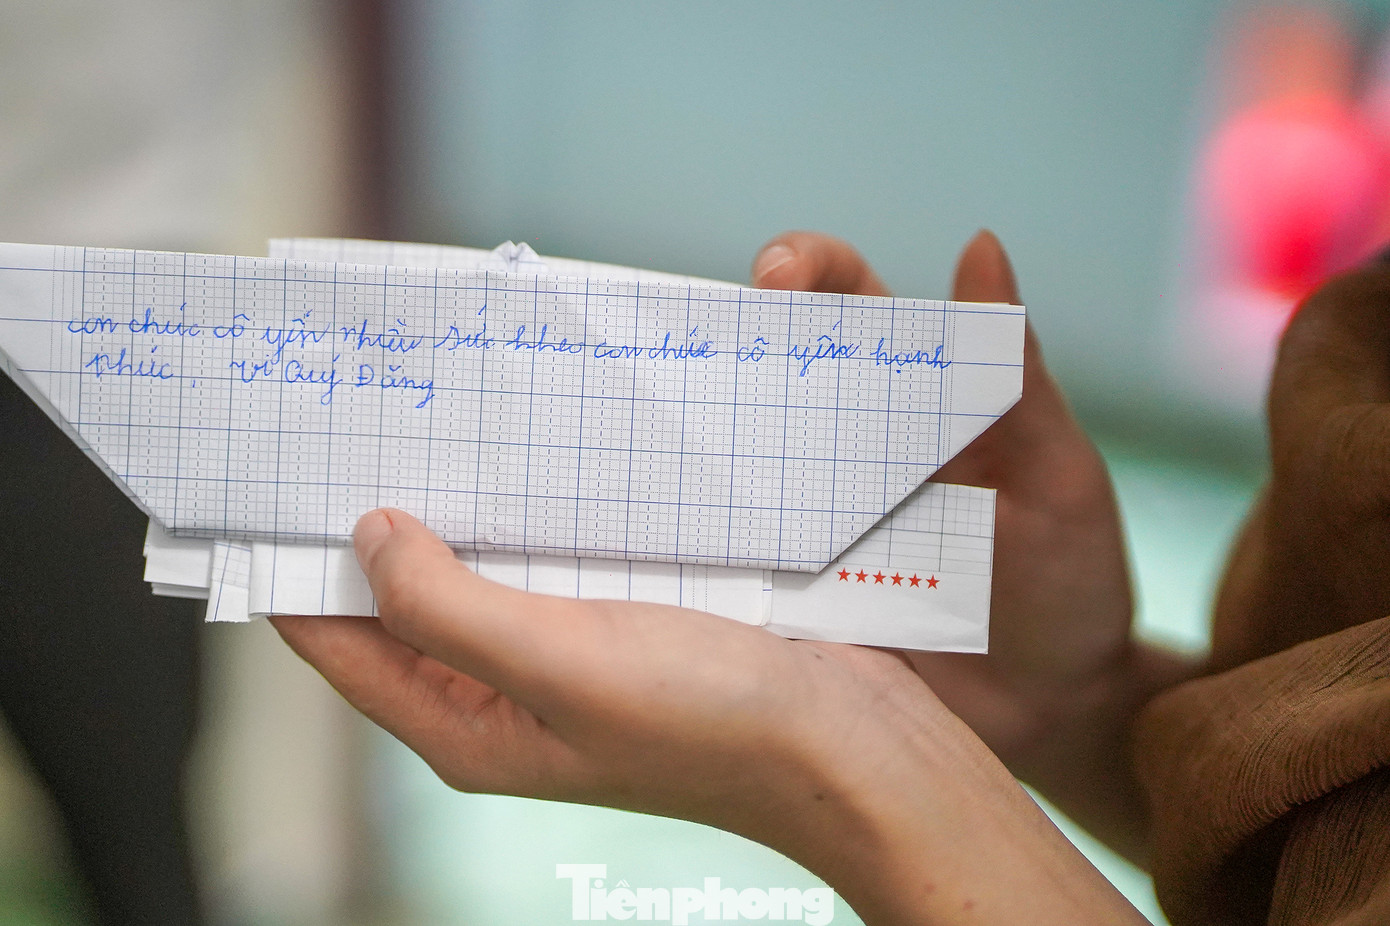 con chúc cô yến nhiều sức kheo con chúc cô yến hạnh
phúc, Vi Quý Đăng
Tiênphong